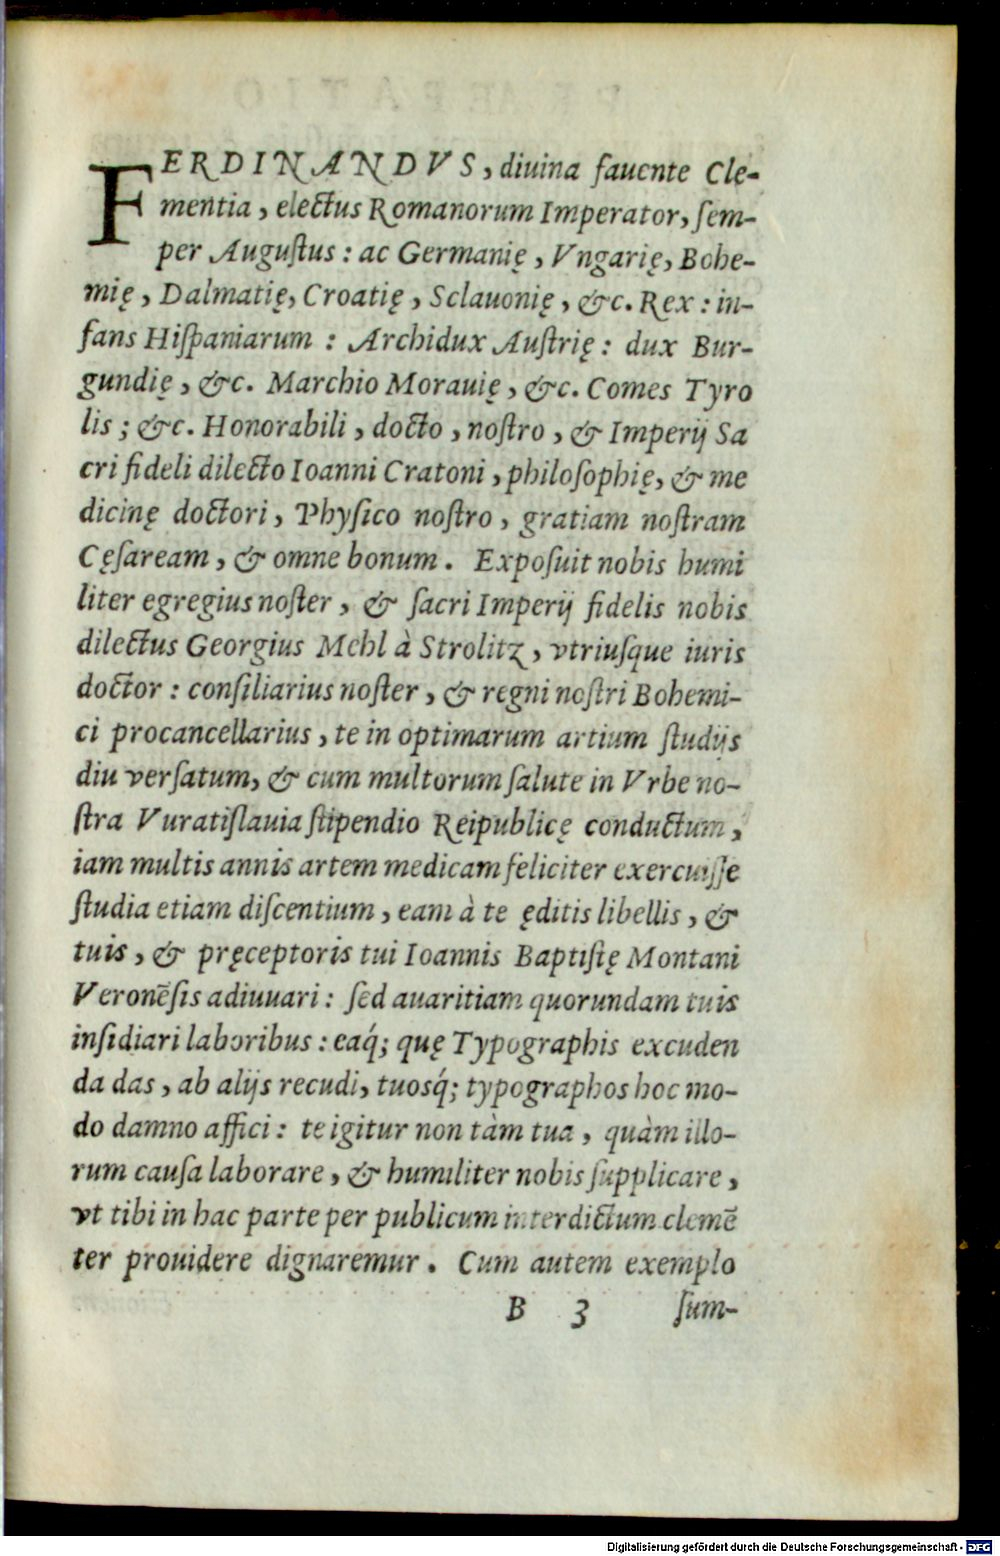 FERDINANDVS, diuina fauente Cle-
mentia, electus Romanorum Imperator, ſem-
per Auguſtus: ac Germanię, Vngarię, Bohe-
mię, Dalmatię, Croatię, Sclauonię, &c. Rex: in-
fans Hiſpaniarum : Archidux Auſtrię: dux Bur-
gundię, &c. Marchio Morauię, &c. Comes Tyro
lis; &c. Honorabili, docto, noſtro, & Imperij Sa
cri fideli dilecto Ioanni Cratoni, philoſophię, & me
dicinę doctori, Phyſico noſtro, gratiam noſtram
Cęſaream, & omne bonum. Expoſuit nobis humi
liter egregius noſter, & ſacri Imperij fidelis nobis
dilectus Georgius Mehl à Strolitz, vtriuſque iuris
doctor: conſiliarius noſter, & regni noſtri Bohemi-
ci procancellarius, te in optimarum artium ſtudijs
diu verſatum, & cum multorum ſalute in Vrbe no-
ſtra Vuratiſlauia ſtipendio Reipublicę conductum,
iam multis annis artem medicam feliciter exercuiſſe
ſtudia etiam diſcentium, eam à te ęditis libellis, &
tuis, & pręceptoris tui Ioannis Baptiſtę Montani
Veronēſis adiuuari: ſed auaritiam quorundam tuis
inſidiari laboribus: eaq́; quę Typographis excuden
da das, ab alijs recudi, tuosq́; typographos hoc mo-
do damno affici: te igitur non tàm tua, quàm illo-
rum cauſa laborare, & humiliter nobis ſupplicare,
vt tibi in hac parte per publicum interdictum clemē
ter prouidere dignaremur. Cum autem exemplo
B 3 ſum-
Digitalisierung gefördert durch die Deutsche Forschungsgemeinschaft - DFG